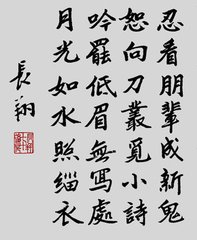 忍看朋輩成新鬼
怒向刀叢覓小詩
吟罷低眉無寫處
月光如水照緇衣
長翔